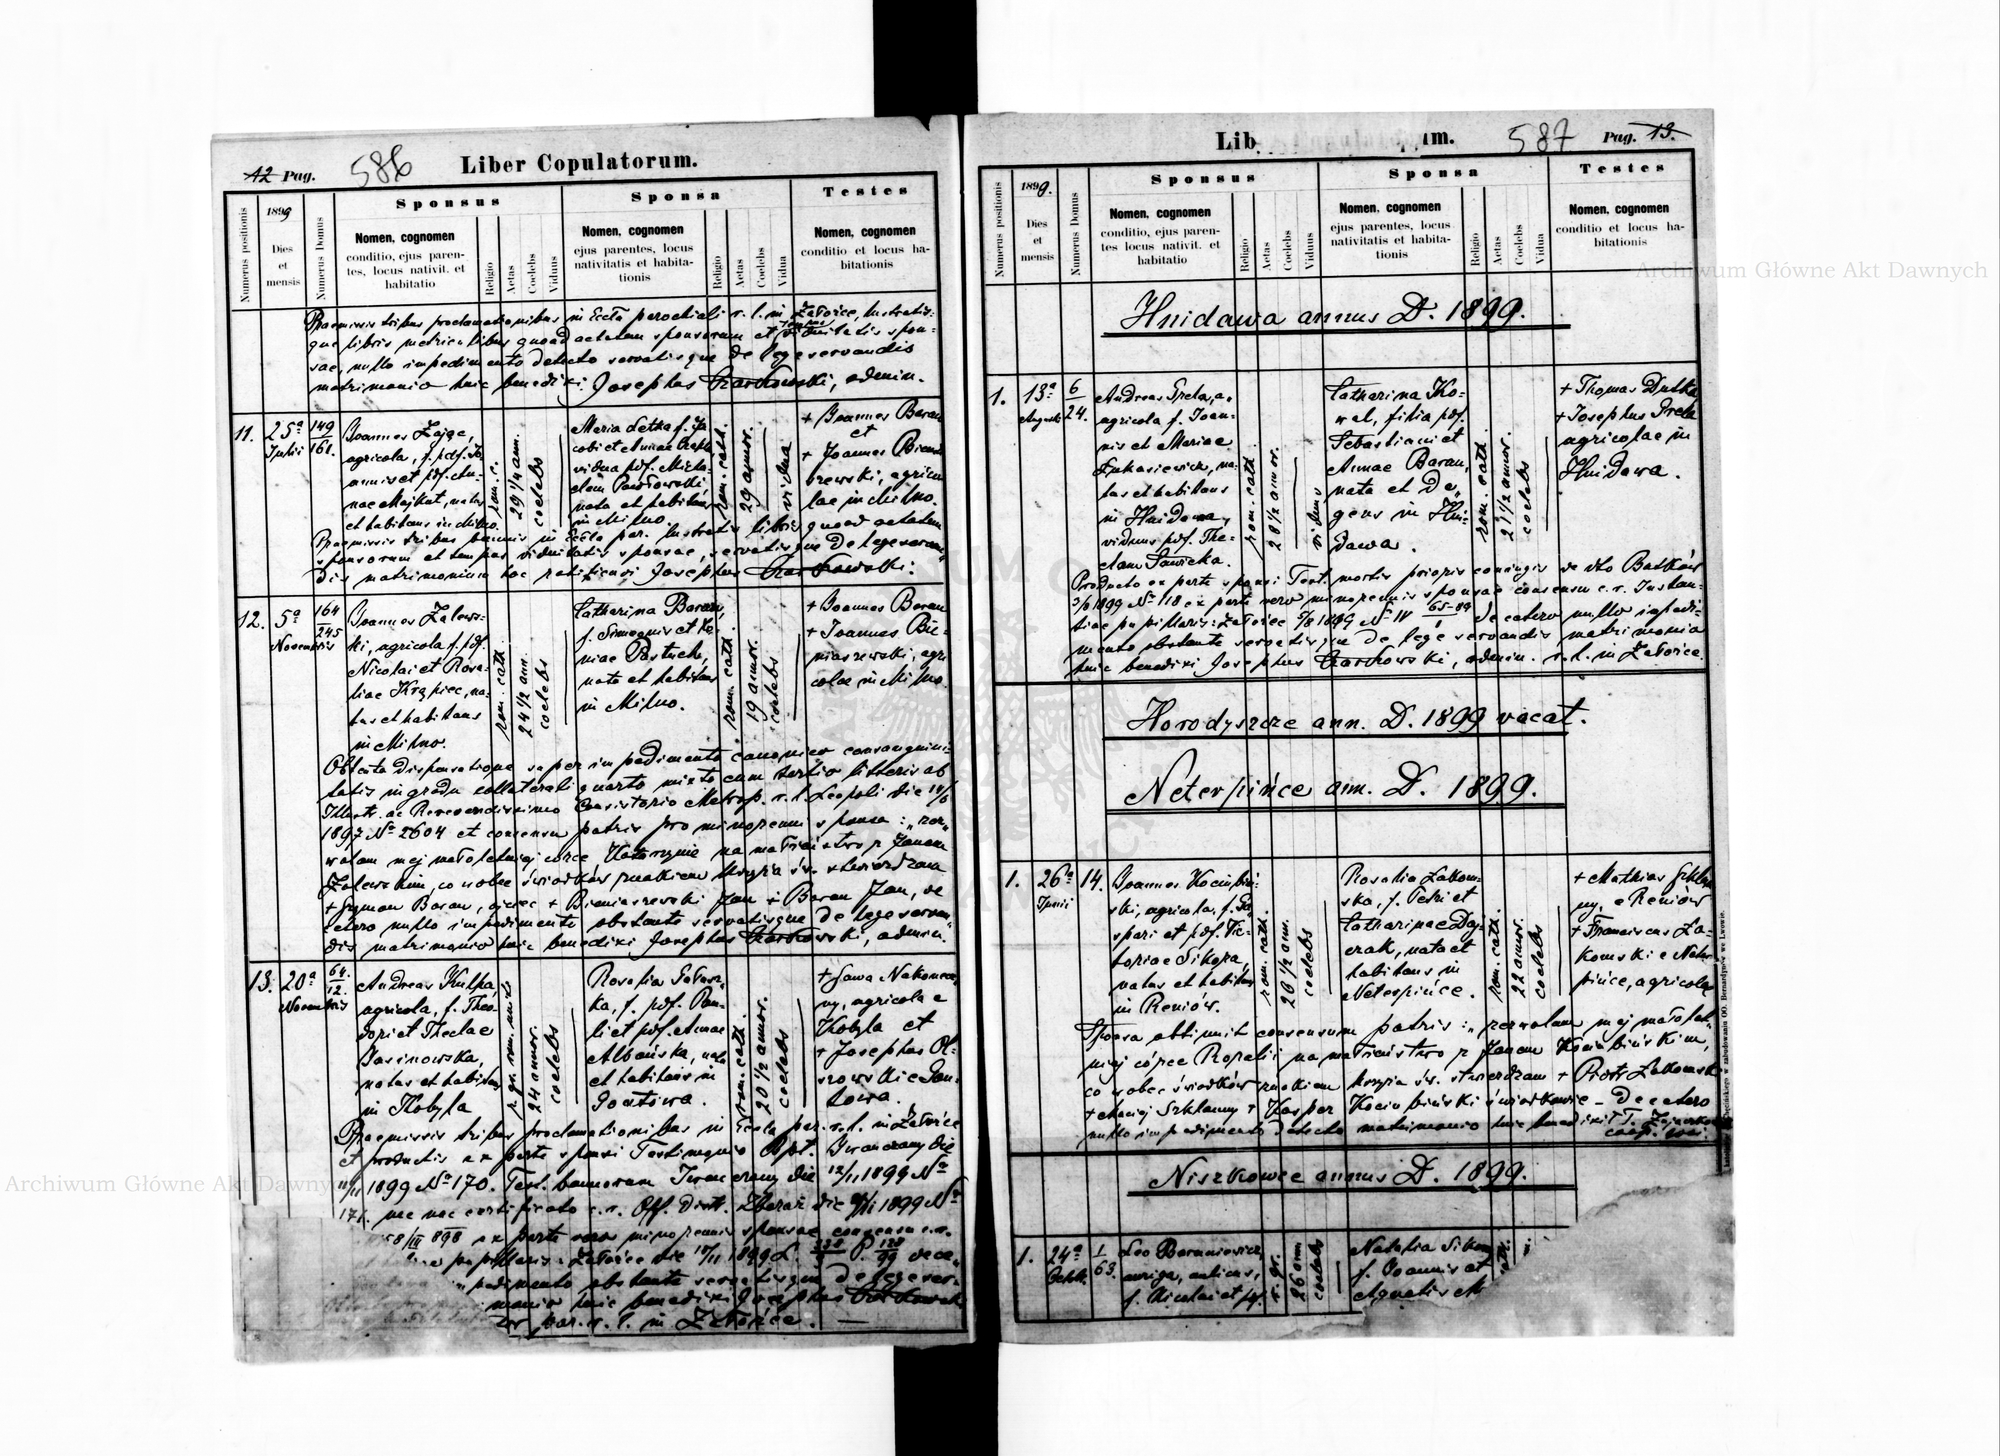 12 Pag. 586 Liber Copulatorum.
Numerus positionis
1899
Dies
et
mensis
Numerus Domus
Sponsus
Nomen, cognomen
conditio, ejus paren-
tes, locus nativit. et
habitatio
Religio
Aetas
Coelebs
Viduus
Sponsa
Nomen, cognomen
ejus parentes, locus
nativitatis et habita-
tionis
Religio
Aetas
Coelebs
Vidua
Testes
Nomen, cognomen
conditio et locus ha-
bitationis
Praemissis tribus proclamationibus in Eccla parochiali r. l. in Załoźce, lustratis-
que libris metricalibus quoad aetatem sponsorum et viduitatis spon-
sae, nullo impedimento detecto servatisque de lege servandis
matrimonio huic benedixi Josephus admin.
11.
25ª
Julii
149
161.
Joannes Zając,
agricola, f. pdf. Jo-
annis et pdf. An-
nae Majkut, natus
et habitans in Milno.
rom. c.
29 1/4 ann.
coelebs
Maria f. Ja-
cobi et Annae
vidua pdf. Micha-
elem Pawłowski,
nata et habitans
in Milno.
rom. cath.
29 annor.
vidua
+ Joannes Baran
et
+ Joannes Bienia-
szewski, agrico-
lae in Milno.
Praemissis tribus bannis in Eccla par. lustratis libris quoad aetatem
sponsorum et tempus viduitatis sponsae, servatisque de lege servan-
dis matrimonium hoc Josephus
12.
5ª
Novembris
164
245
Joannes Zalews-
ki, agricola f. pdf.
Nicolai et Rosa-
liae Krąpiec, na-
tus et habitans
in Milno.
rom. cath.
24 1/2 ann.
coelebs
Catharina Baran,
f. Simeonis et Xe-
niae Pastuch,
nata et habitans
in Milno.
rom. cath.
19 annor.
coelebs
+ Joannes Baran
+ Joannes Bie-
niaszewski, agri-
colae in Milno.
Oblata dispensatione super impedimento canonico consanguini-
tatis in gradu collaterali quarto mixto cum tertio litteris ab
Illustr. ac Reverendissimo Consistorio Metrop. r. l. Leopoli die
1897 Nº 2604 et consensu patris pro minorenni sponsa: „zez-
walam mej małoletniej córce Katarzynie na małżeństwo z Janem
Zalewskim, co wobec świadków znakiem krzyża św. stwierdzam
+ Szymon Baran, ojciec + Bieniaszewski Jan + Baran Jan, de
cetero nullo impedimento obstante servatisque de lege servan-
dis matrimonio huic benedixi Josephus admin.
13.
20ª
Novembris
64.
12.
Andreas Kulpa,
agricola, f. Theo-
dori et Theclae
Jasinowska,
natus et habitans
in Kobyla
24 annor.
coelebs
Rosalia
ka, f. pdf. Pau-
li et pdf. Annae
Albańska, nata
et habitans in
Gontowa.
rom. cath.
20 1/2 annor.
coelebs
+ Sawa Nakonecz-
ny, agricola e
Kobyla et
+ Josephus Ol-
szowski e Gon-
towa.
Praemissis tribus proclamationibus in Eccla par. r. l. in Załoźce
et productis ex parte sponsi Testimonio Bapt. Iwanczany die
1899 Nº 170. Test. bannorum Iwanczany die 12/11 1899 Nº
171. nec non certificato c. r. Off. Distr. Zbaraż die 1899 Nº
58/III 898 ex parte vero minorennis sponsae consensu c. r.
pupillaris: Załoźce die 1899 L. P. 128/99 de ce-
pedimento obstante servatisque de lege ser-
monio huic benedixi Josephus
par. r. l. in Załoźce. —
Lib m. 587 Pag. 13.
Numerus positionis
1899.
Dies
et
mensis
Numerus Domus
Sponsus
Nomen, cognomen
conditio, ejus paren-
tes locus nativit. et
habitatio
Religio
Aetas
Coelebs
Viduus
Sponsa
Nomen, cognomen
ejus parentes, locus
nativitatis et habita-
tionis
Religio
Aetas
Coelebs
Vidua
Testes
Nomen, cognomen
conditio et locus ha-
bitationis
Hnidawa annus D. 1899.
1.
13ª
Augusti
6
24.
Andreas Grela,
agricola f. Joan-
nis et Mariae
Łukasiewicz, na-
tus et habitans
in Hnidawa,
viduus pdf. The-
clam Sawicka.
rom. cath.
28 1/2 annor.
viduus
Catharina Ko-
wal, filia pdf.
Sebastiani et
Annae Baran,
nata et de-
gens in Hni-
dawa.
rom. cath.
21 1/2 annor.
coelebs
+ Thomas Dutka
+ Josephus Grela
agricolae in
Hnidawa.
Producto ex parte sponsi Test. mortis prioris coniugis de dto Batków
3/8 1899 Nº 118 ex parte vero minorennis sponsae consensu c. r. Instan-
tiae pupillaris: Załoźce 5/8 1899 Nº IV de cetero nullo impedi-
mento obstante servatisque de lege servandis matrimonio
huic benedixi Josephus admin. r. l. in Załoźce.
Horodyszcze ann. D. 1899 vacat.
Neterpińce ann. D. 1899.
1.
26ª
Junii
14.
Joannes Kociubiń-
ski, agricola, f. Ga-
spari et pdf. Vic-
toriae Sikora,
natus et habitans
in Reniów.
rom. cath.
26 1/2 ann.
coelebs
Rosalia Łakom-
ska, f. Petri et
Catharinae Daj-
czak, nata et
habitans in
Neterpińce.
rom. cath.
22 annor.
coelebs
+ Mathias Szklan-
ny, e Reniów
+ Franciscus Ła-
komski e Neter-
pińce, agricolae
Sponsa obtinuit consensum patris: „zezwalam mej małolet-
niej córce Rozalii na małżeństwo z Janem Kociubińskim,
co wobec świadków znakiem krzyża św. stwierdzam + Piotr Łakomski
+ Maciej Szklanny + Kasper Kociubiński świadkowie — De cetero
nullo impedimento detecto matrimonio huic benedixit
coop.
Niszkowce annus D. 1899.
1.
24ª
Octob.
1
63.
Leo Baraniewicz
auriga,
f. Nicolai et pdf.
r. gr.
26 ann
coelebs
Natalia
f. Joannis et
Agnetis
Archiwum Główne Akt Dawnych
Archiwum Główne Akt Dawnych